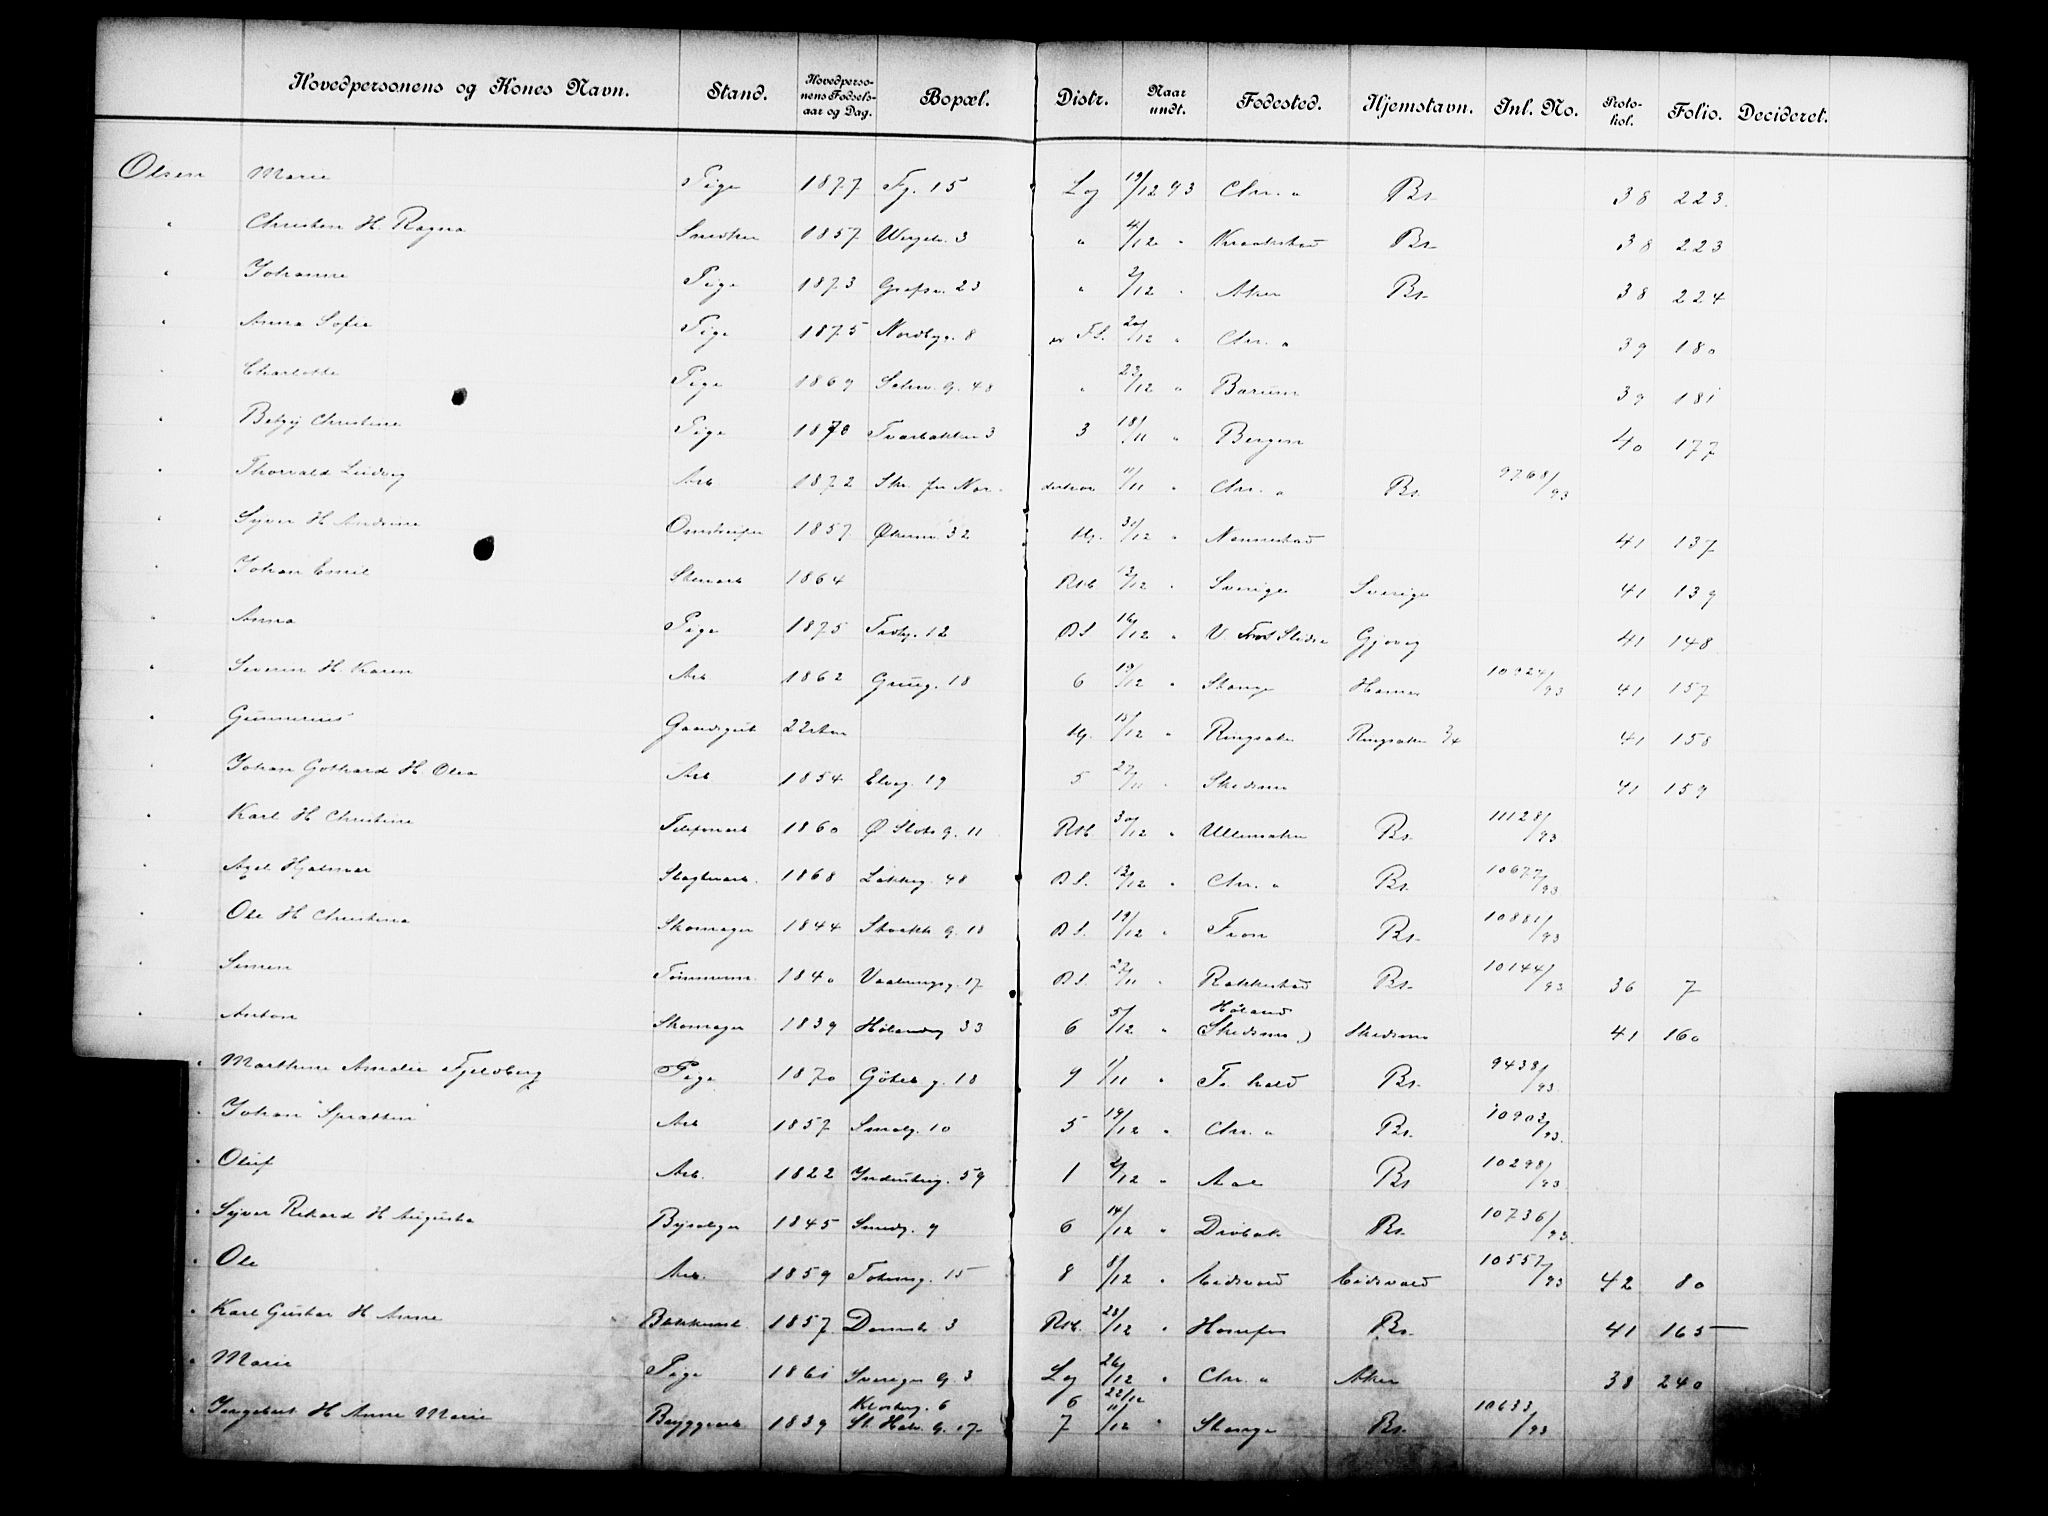 Hovedpersonens og Kones Navn. Stand. Hovedpersonens Fødselsaar og Dag. Bopæl. Distr. Naar undt. Fødested. Hjemstavn. Inl. No. Protokol. Folio. Decideret.
Olsen Marie Pige 1877 Fg. 15 Lg 19/12 93 Chr. a Bs. 38 223
" Christen H. Ragna Snedker 1857 Wergels. 3 " 4/12 " Kraakstad Bs. 38 223
" Johanne Pige 1873 Grefsv. 23 " 2/12 " Aker Bs. 38 224
" Anna Sofie Pige 1875 Nordbyg. 8 FS. 20/12 " Chr. a 39 180
" Charlotte Pige 1869 Schw. g. 48 " 23/12 " Bærum 39 181
" Betzy Christine Pige 1870 Tværbakken 3 3 18/11 " Bergen 40 177
" Thorvald Ludvig Arb 1872 11/11 " Chr. a Bs. 9768/93
" Syver H. Andrine Omdreifer 1857 Økernv. 32 Ug. 31/12 " Nannestad 41 137
" Johan Emil Stenarb 1864 Rst. 12/12 " Sverige Sverige 41 139
" Anna Pige 1875 Tvedtg. 12 BS. 16/12 " V Slidre Gjøvig 41 148
" Severin H. Karen Arb 1862 Grüg. 18 6 19/12 " Stange Hamar 10924/93 41 157
" Gunnerius Gaardsgut 22 Aar Ug. 15/12 " Ringsaker Ringsaker 3/4 41 158
" Johan Gothard H. Olea Arb 1854 Elveg. 19 5 27/11 " Skedsmo 41 159
" Karl H. Christine Telefonarb 1860 Ø. Slots g. 11 Rst. 30/12 " Ullensaker Bs. 11128/93
" Axel Hjalmar Slagterarb. 1868 Lakkeg. 48 BS. 12/12 " Chr. a Bs. 10677/93
" Ole H. Christina Skomager 1844 Storkk g. 18 BS. 19/12 " Fron Bs. 10881/93
" Simen Tømmerm. 1840 Vaalerengsg. 17 BS. 27/11 " Rakkestad Bs. 10144/93 36 7
Høland
" Anton Skomager 1839 Hølandsg 33 6 5/12 " (Skedsmo) Skedsmo 41 160
" Marthine Amalie Fjeldberg Pige 1870 Göteb g. 18 9 1/11 " Fr. hald Bs. 9438/93
" Johan "Sprætten" Arb 1857 Smalg. 10 5 19/12 " Chr. a Bs. 10903/93
" Oluf Arb. 1822 Industrig. 59 1 2/12 " Aal Bs 10298/93
" Syver Rikard H. Augusta Bysælger 1845 Smedg. 9 6 14/12 " Drøbak Bs. 10736/93
" Ole Arb. 1859 Toftesg. 15 8 8/12 " Eidsvold Eidsvold 10557/93 42 80
" Karl Gustav H. Anne Blikkensl. 1857 Danneb. 3 Rst. 28/12 " Hønefos Bs. 41 165
" Marie Pige 1861 Sverige g. 3 Lg 26/12 " Chr. a Aker 38 240
Klosterg. 6 6 22/12
" Ingebret H. Anne Marie Bryggearb 1839 St. Halv. g. 17 7 11/12 " Stange Bs. 10633/93